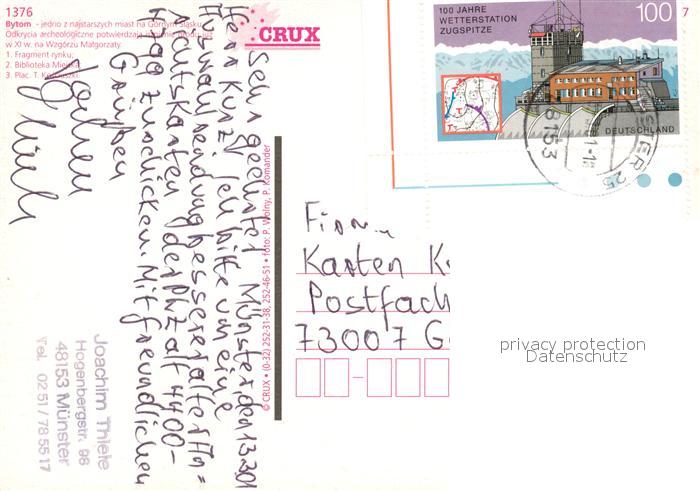 1376
Bytom - jedno z najstarszych miast na Górnym Śląsku.
Odkrycia archeologiczne potwierdzają istnienie grodu już
w XI w. na Wzgórzu Małgorzaty.
1. Fragment rynku;
2. Biblioteka Miejska
3. Plac. T. Kościuszki.
CRUX
100 JAHRE
WETTERSTATION
ZUGSPITZE
100
7
DEUTSCHLAND
MÜNSTER 25
48153
Münster, den 13.3.01
Sehr geehrter
Herr Kurz! Ich bitte um eine
Auswahlsendung besserer alter An=
sichtskarten der PLZ alt 4400-
zu schicken. Mit freundlichen
Grüßen
© CRUX • (0-32) 252-31-38, 252-46-51 • foto: P. Wolny, P. Komander
Joachim Thiele
Hogenbergstr. 98
48153 Münster
Tel. 0251/785517
Firma
Karten K
Postfach
73007 G
privacy protection
Datenschutz